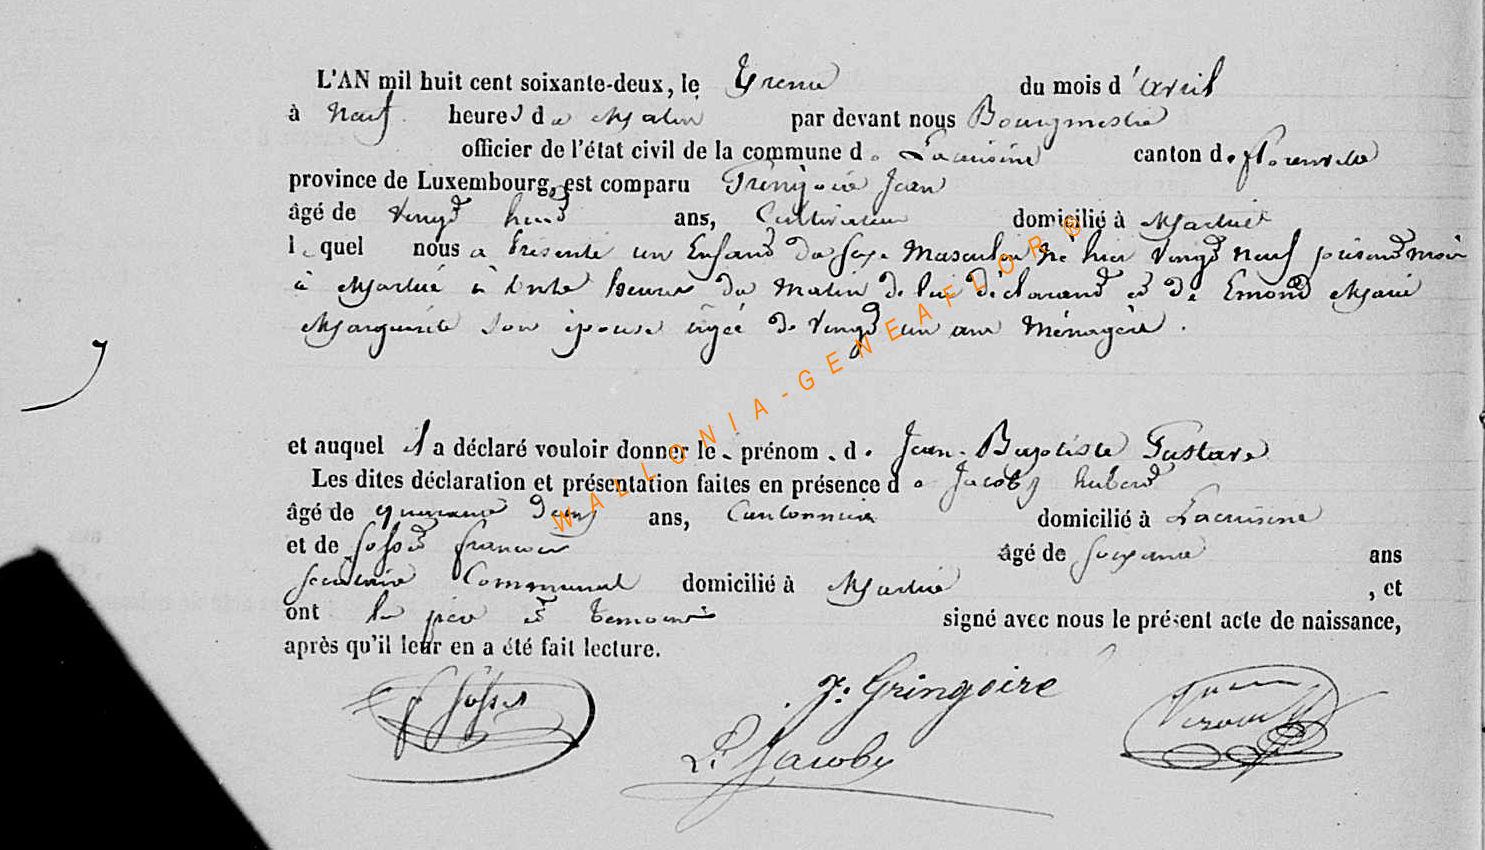 L'AN mil huit cent soixante-deux, le Trente du mois d'avril
à Neuf heures du Matin par devant nous Bourgmestre
officier de l'état civil de la commune de Lacuisine canton de florenville
province de Luxembourg, est comparu Gringoire Jean
âgé de Vingt huit ans, Cultivateur domicilié à Martué
lequel nous a présenté un Enfant du sexe Masculin Né hier Vingt Neuf présent mois
à Martué à onze heures du Matin de lui déclarant et de Emond Marie
Marguerite son épouse âgée de Vingt un ans Ménagère.
et auquel il a déclaré vouloir donner le prénom de Jean-Baptiste Gustave
Les dites déclaration et présentation faites en présence de Jacoby hubert
âgé de quarante deux ans, Cantonnier domicilié à Lacuisine
et de Josse françois âgé de soixante ans
secrétaire Communal domicilié à Martué, et
ont le père et témoins signé avec nous le présent acte de naissance,
après qu'il leur en a été fait lecture.
J: Gringoire
Jacoby
WALLONIA-GENEAFLOR®